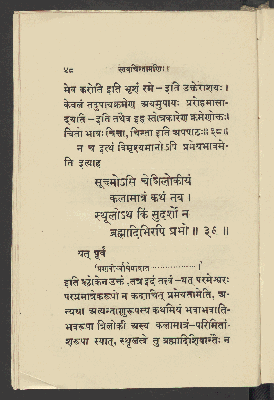 ४८ स्तवचिन्तामणिः।
मेव करोति इति भृशं रमे—इति उक्तेराशयः।
केवलं तदुपायक्रमेण अयमुपायः प्ररोहमासा-
दयति—इति तथैव इह स्तोत्रकारेण क्रमेणोक्तः।
चितो भावः चित्ता, चिन्ता इति अपपाठः॥३८॥
न च इत्थं विमृश्यमानोऽपि प्रमेयभावमे-
ति इत्याह
सूक्ष्मोऽसि चेत्त्रिलोकीयं
कलामात्रं कथं तव।
स्थूलोऽथ किं सुदर्शो न
ब्रह्मादिभिरपि प्रभो॥ ३९ ॥
यत् पूर्वं
इति श्लोकेन उक्तं, तत्र इदं तत्त्वं—यत् परमेश्वरः
परप्रमात्रेकरूपो न कदाचित् प्रमेयतामेति, अ-
न्यथा अत्यन्ताणुरूपस्य कथमियं भवाभवाति-
भवरूपा त्रिलोकी अस्य कलामात्रं—परिमितां-
शरूपा स्यात्, स्थूलत्वे तु ब्रह्मादिशिवान्तैः न